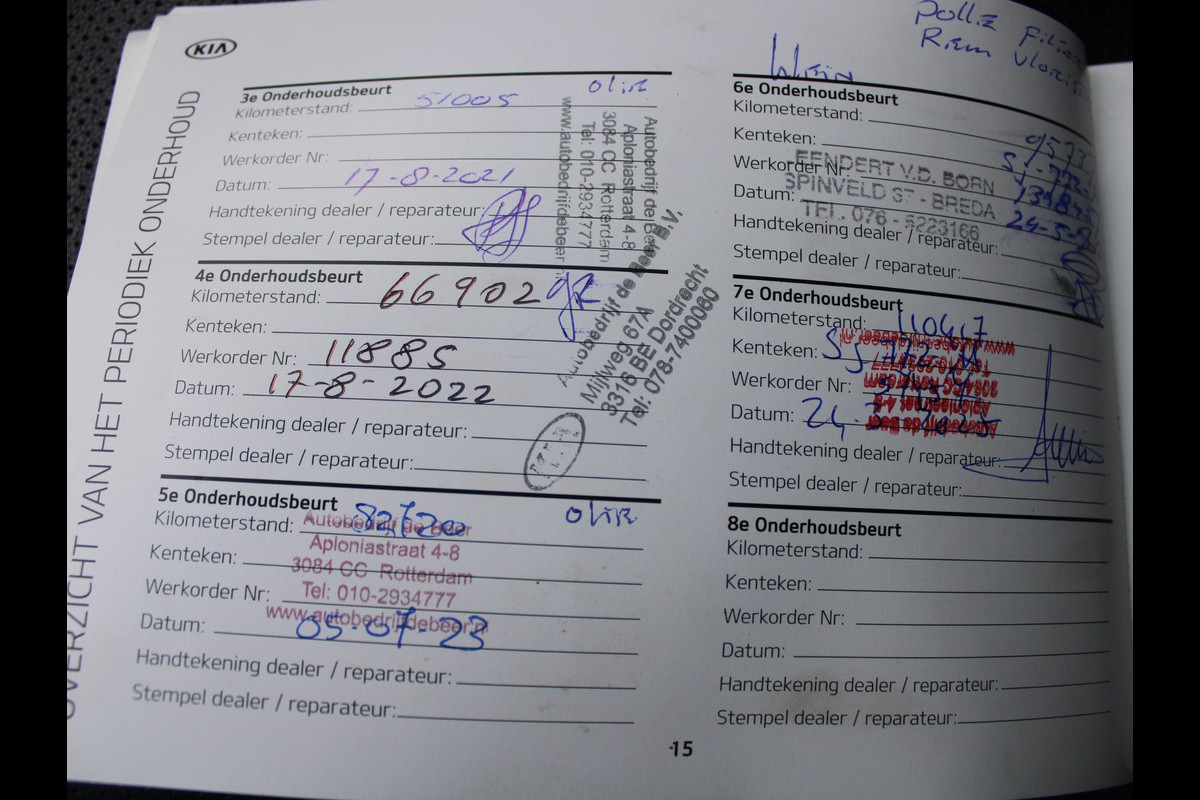 KIA
OVERZICHT VAN HET PERIODIEK ONDERHOUD
3e Onderhoudsbeurt
olie
Kilometerstand: 51005
Kenteken:
Werkorder Nr:
Datum: 17-8-2021
Handtekening dealer / reparateur:
Stempel dealer / reparateur:
Autobedrijf de Beer
Aploniastraat 4-8
3084 CC Rotterdam
Tel: 010-2934777
www.autobedrijfdebeer.nl
4e Onderhoudsbeurt
Kilometerstand: 66902
Kenteken:
Werkorder Nr: 11885
Datum: 17-8-2022
Handtekening dealer / reparateur:
Stempel dealer / reparateur:
Autobedrijf de Beer B.V.
Mijlweg 67A
3316 BE Dordrecht
Tel: 078-7400060
5e Onderhoudsbeurt
olie
Kilometerstand: 82720
Kenteken:
Werkorder Nr:
Datum: 05-07-23
Handtekening dealer / reparateur:
Stempel dealer / reparateur:
Autobedrijf de Beer
Aploniastraat 4-8
3084 CC Rotterdam
Tel: 010-2934777
www.autobedrijfdebeer.nl
Pollie
Riem
6e Onderhoudsbeurt
Kilometerstand:
Kenteken:
Werkorder Nr:
Datum: 24-5-
Handtekening dealer / reparateur:
Stempel dealer / reparateur:
EENDERT V.D. BORN
SPINVELD 37 - BREDA
TEL. 076 - 5223166
7e Onderhoudsbeurt
Kilometerstand: 110417
Kenteken:
Werkorder Nr:
Datum:
Handtekening dealer / reparateur:
Stempel dealer / reparateur:
Autobedrijf de Beer
Aploniastraat 4-8
3084 CC Rotterdam
Tel: 010-2934777
www.autobedrijfdebeer.nl
8e Onderhoudsbeurt
Kilometerstand:
Kenteken:
Werkorder Nr:
Datum:
Handtekening dealer / reparateur:
Stempel dealer / reparateur:
15